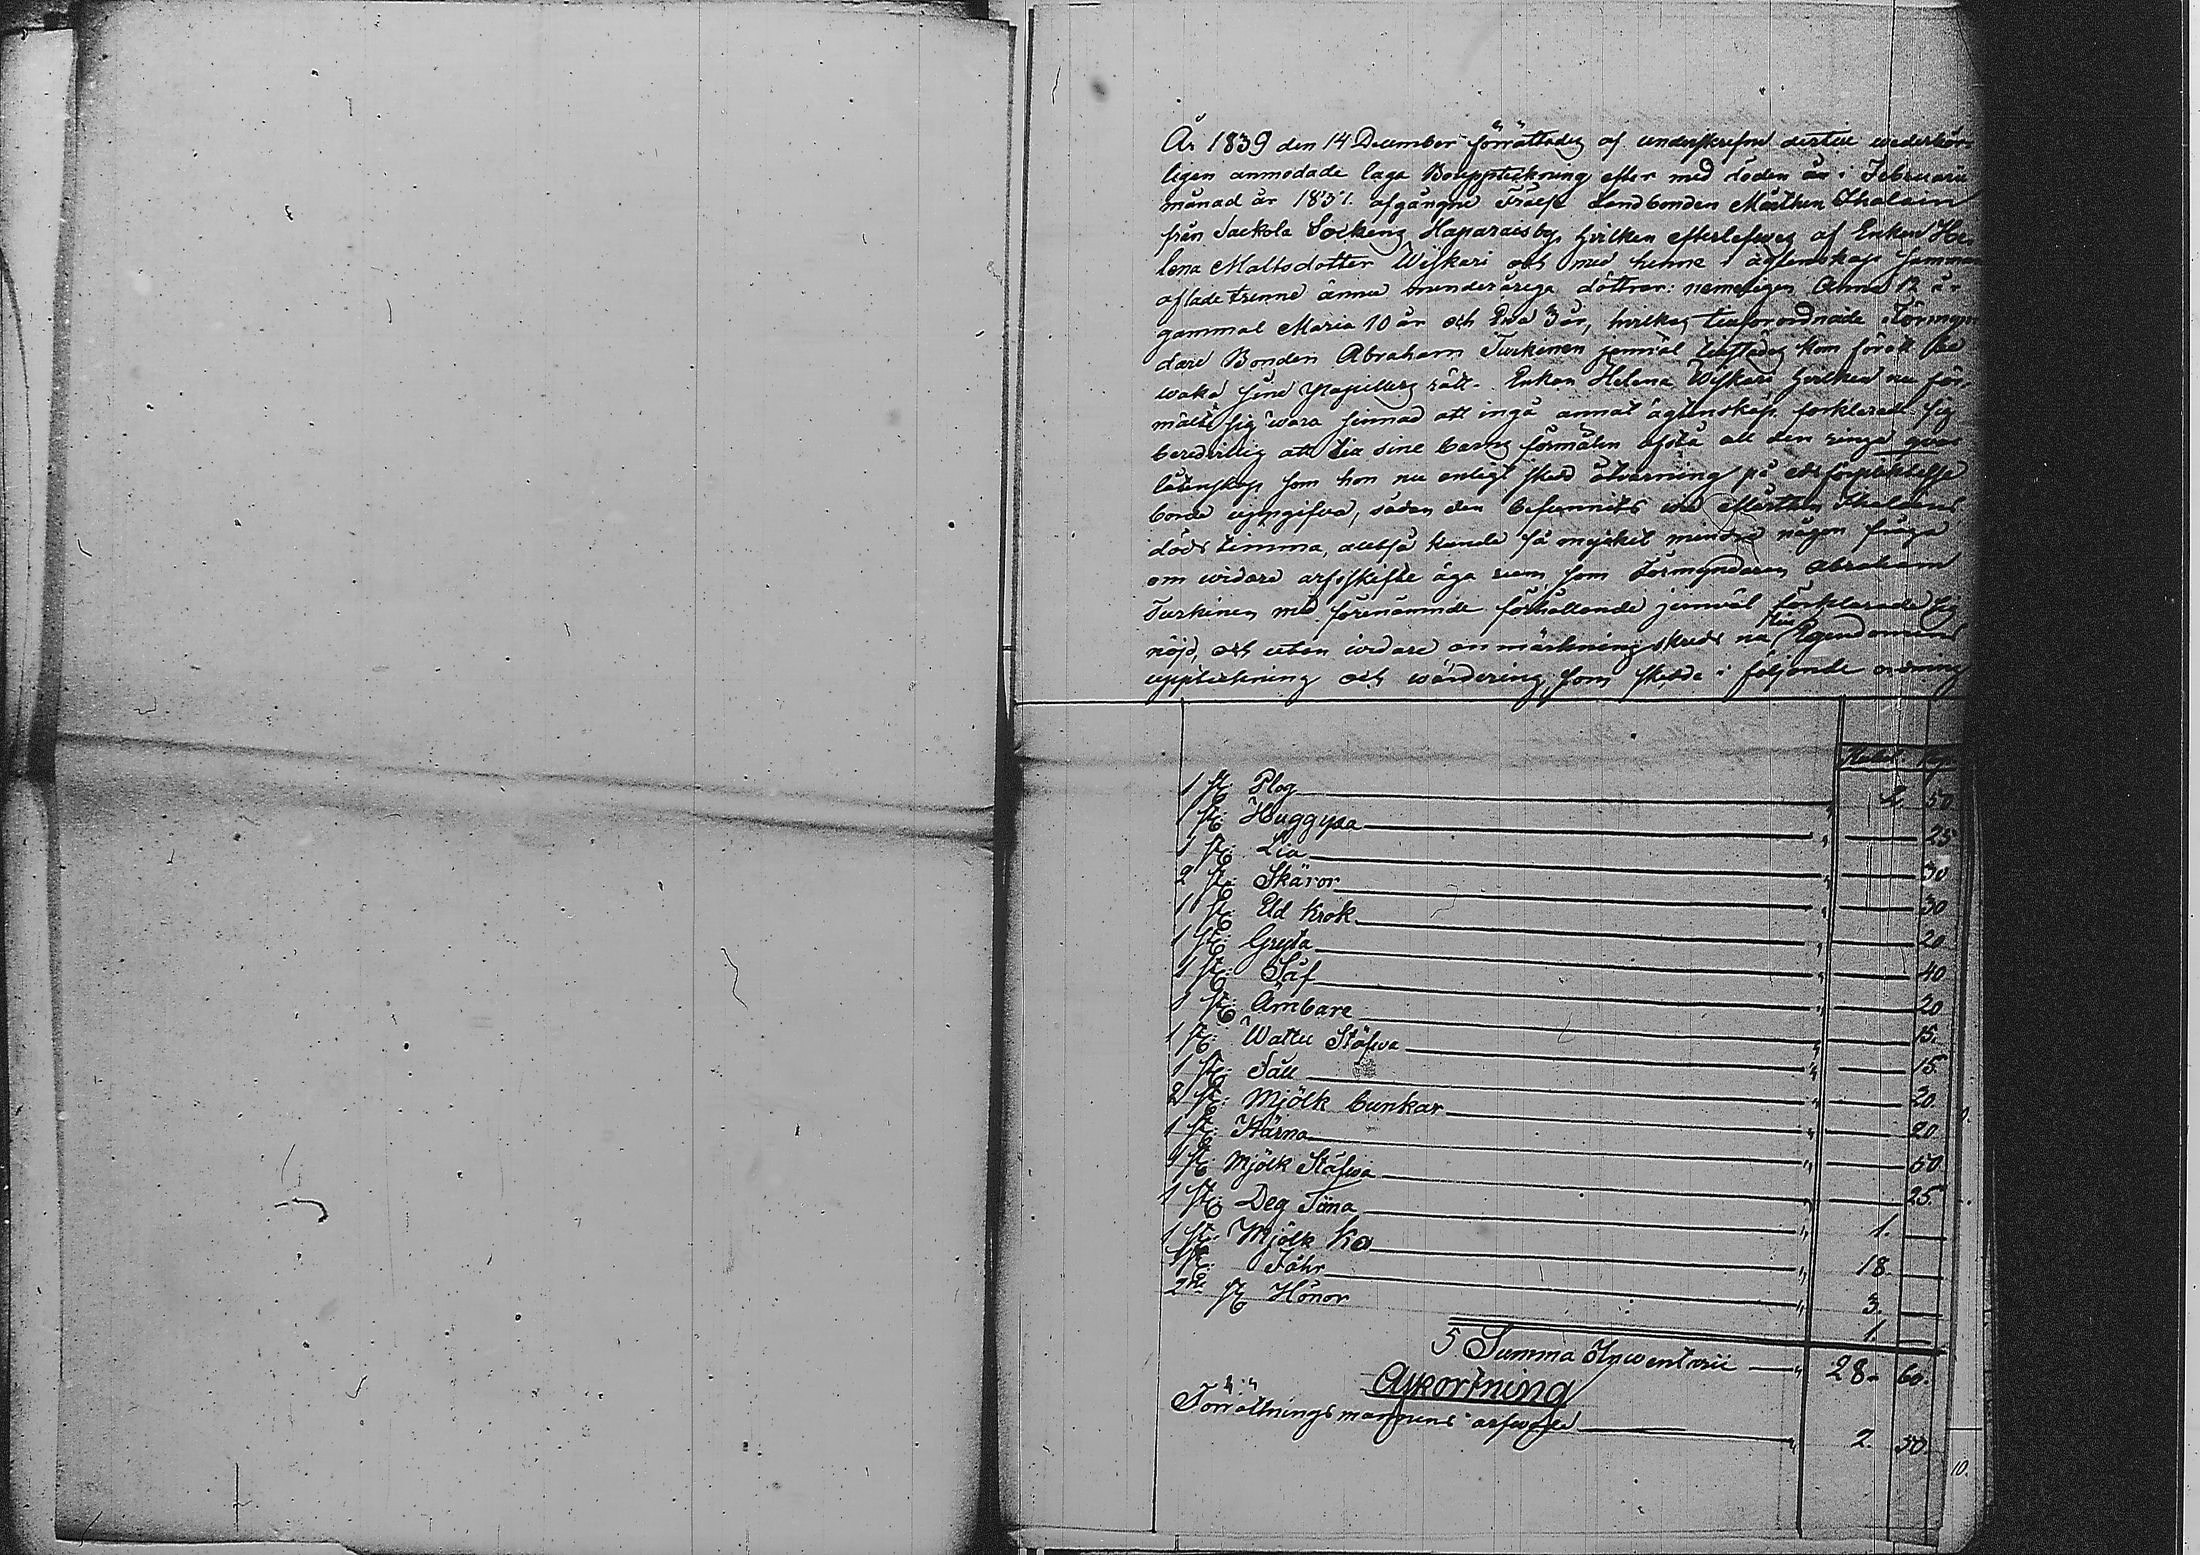 År 1839 den 14 December förrättades af underskrefne dertill wederbör-
ligen anmodade laga Bouppteckning efter med döden i Februarii
månad år 1837. afgångne Frälse Landbonden Mårthen Ihalain
från Sackola Sockens Haparaisby, hvilken efterlefwes af Enkan He-
lena Mattsdotter Wiskari och med henne i ägtenskap samman
aflade trenne ännu minderåriga döttrar: nemligen Anna 12 år
gammal Maria 10 år och Ewa 3 år, hvilkas tillförordnade Förmyn
dare Bonden Abraham Turkinen jemväl tillstädes kom för att be
waka sine Pupillers rätt. Enkan Helena Wiskari hvilken nu för-
mälte sig wara sinnad att ingå annat ägtenskap, förklarade sig
beredvillig att till sine barns förmån afstå all den ringa qvar
låtenskap som hon nu enligt skedd åtvarning på edsförpliktelse
borde uppgifva, sådan den befunnits wid Mårthen Ihalains
döds timma, alltså kunde så myckit mindre någon fråga
om widare arfsskifte äga rum, som Förmyndaren Abraham
Turkinen med förenämnde förhållande jemväl förklarade sig
nöjd, och utan widare anmärkning skreds nu till Egendomens
uppteckning och wärdering som skedde i följande ordning
1 st: Plog 50
1 st: Huggyxa 25
1 st: Lia 30
2 st: Skäror 30
1 st: Eld krok 20
1 st: Gryta 40
1 st: Såf 20
1 st: Ämbare 15.
1 st: Wattu Stäfwa 15
1 st: Såll 20
2 st: Mjölk bunkar 20
1 st: Kärna 50
1 st: Mjölk Stäfwa 25.
1 st: Deg Tina 1.
1 st: Mjölk ko 18.
1 st: Fåhr 3.
2 st Hönor 1.
Summa Inwentarii 28. 60.
Afkortning
Förrättnings mannens arfwode 2. 50.
10.